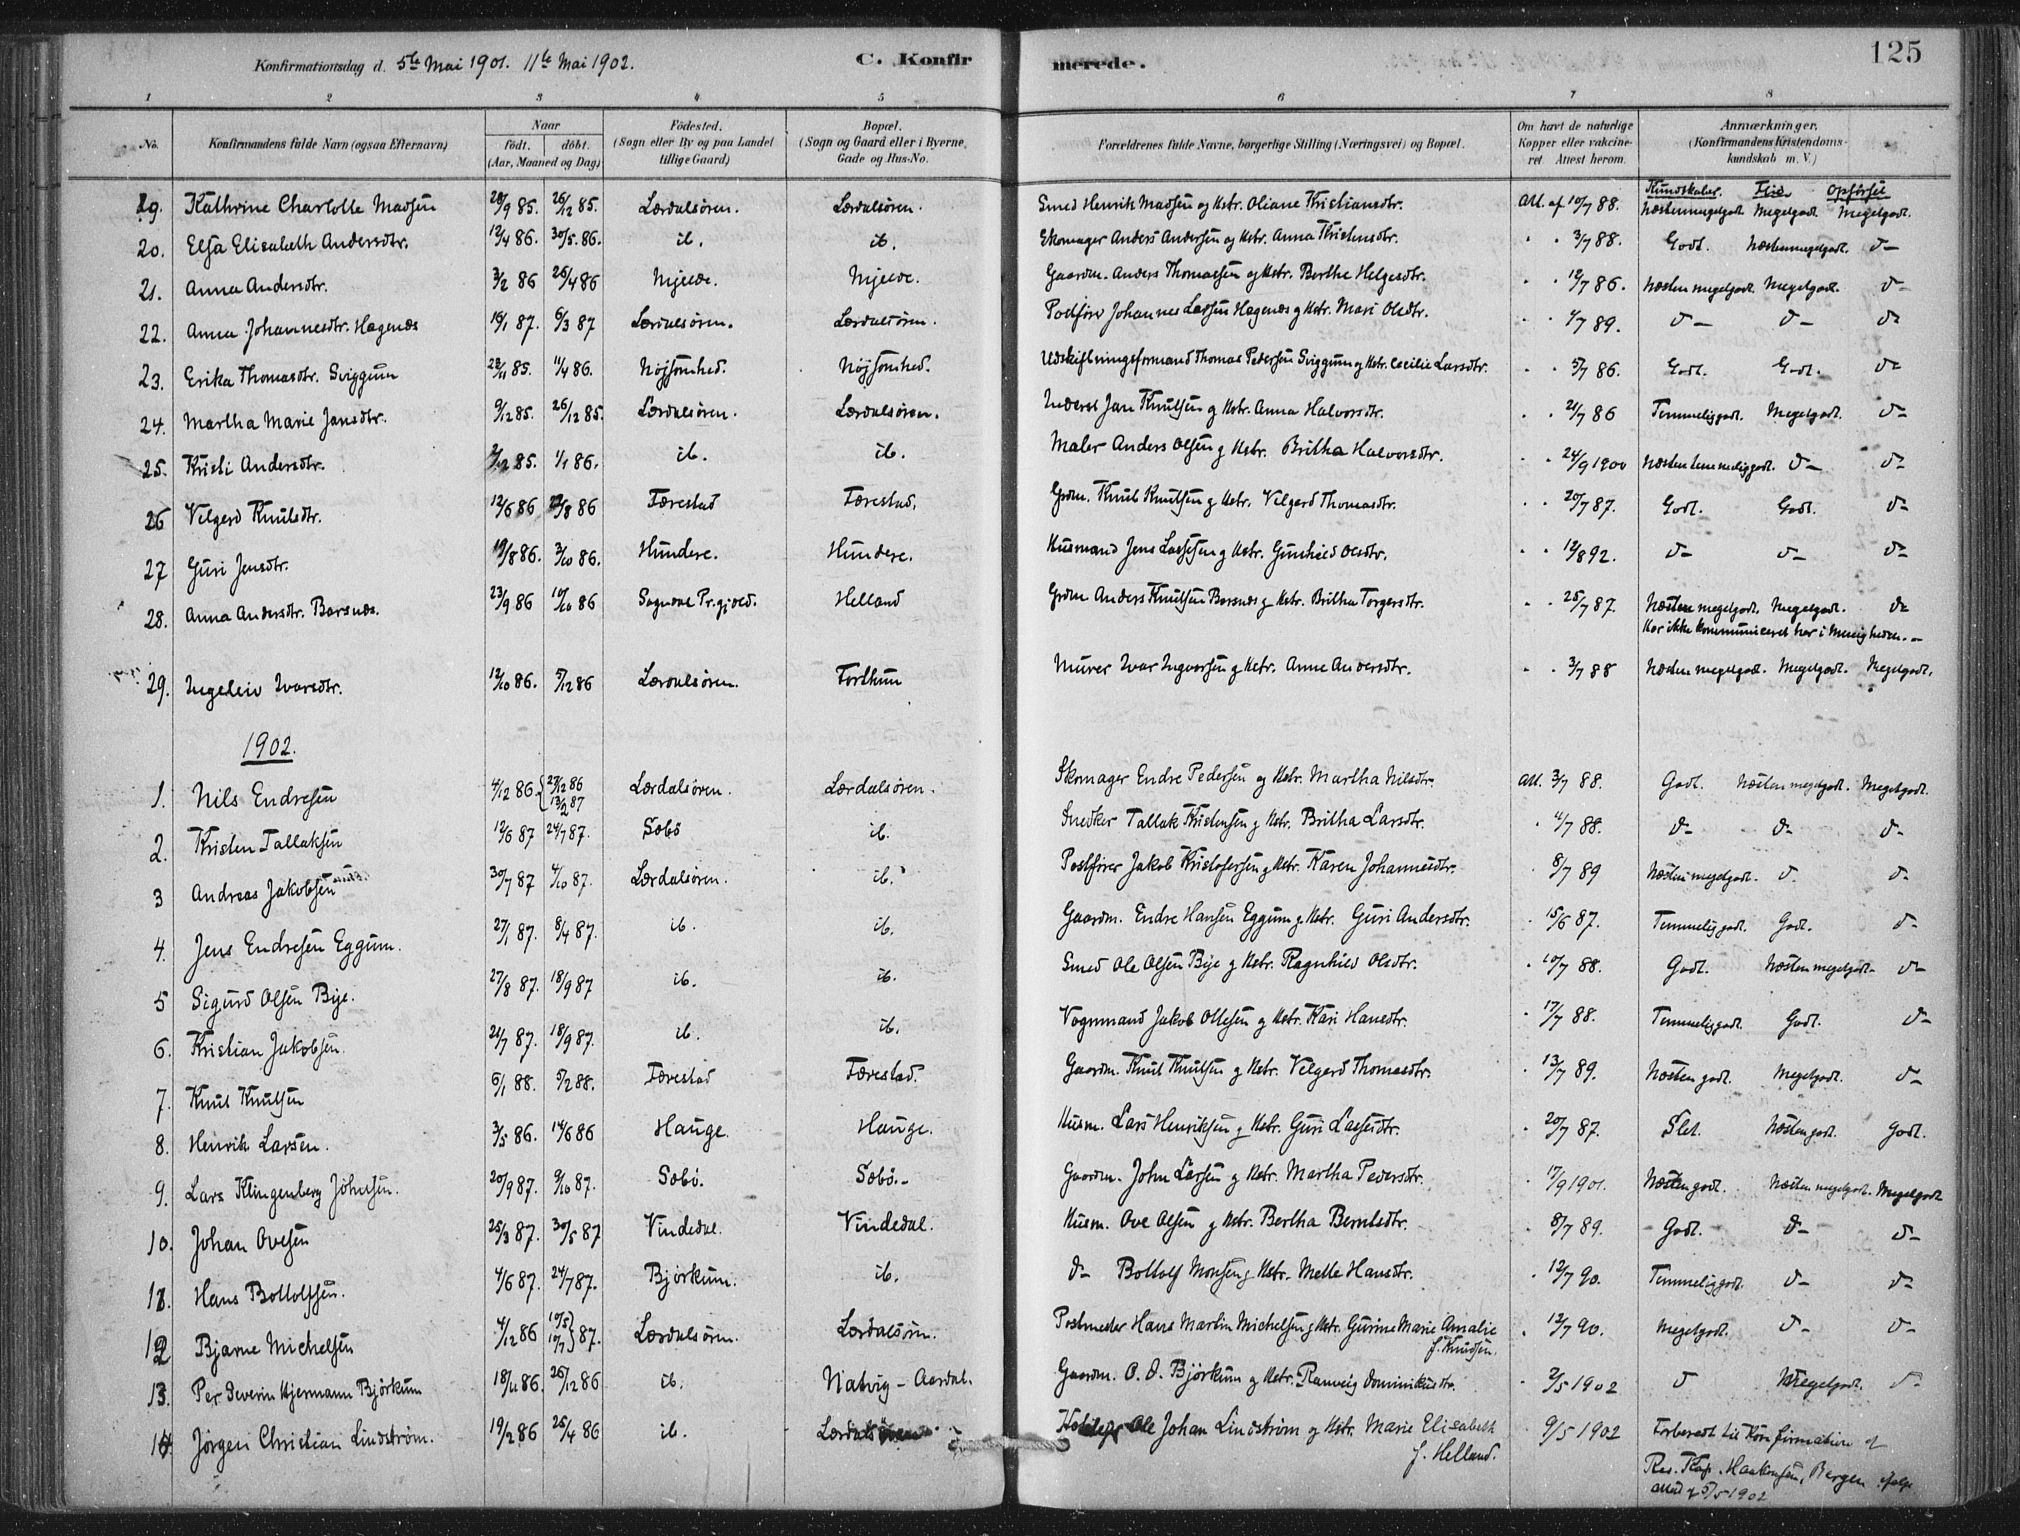 125
Konfirmationsdag d. 5te Mai 1901. 11te Mai 1902. C. Konfirmerede.
1 2 3 4 5 6 7 8
No. Konfirmandens fulde Navn (ogsaa Efternavn) Naar födt. döbt. (Aar, Maaned og Dag) Födested. (Sogn eller By og paa Landet tillige Gaard) Bopæl. (Sogn og Gaard eller i Byerne Gade og Hus-No. Forældrenes fulde Navne, borgerlige Stilling (Næringsvei) og Bopæl. Om havt de naturlige Kopper eller vakcineret Attest herom. Anmærkninger. (Konfirmandens Kristendomskundskab m. V.)
Kundskaber. Flid Opførsel
19. Kathrine Charlotte Madsen 28/9 85. 26/12 85. Lærdalsören. Lærdalsören. Smed Henrik Madsen og Hstr. Oliane Kristiansdtr. Att. af 10/7 88. Næstenmegetgodt. Megetgodt. Megetgodt.
20. Elsa Elisabeth Andersdtr. 12/4 86. 30/5 86. ib. ib. Skomager Anders Andersen og Hstr. Anna Kristensdtr. " " 3/7 88. Godt. Næstenmegetgodt d-
21. Anna Andersdtr. 3/2 86 26/4 86 Mjelde. Mjelde. Gaardm. Anders Thomassen og Hstr. Berthe Helgesdtr. " " 12/7 86. Næsten megetgodt. Megetgodt. d-
22. Anna Johannesdtr. Hagenæs 16/1 87. 6/3 87 Lærdalsören. Lærdalsören. Postförer Johannes Larsen Hagenæs og Hstr. Mari Olsdtr. " " 4/7 89. d- d- d-
23. Erika Thomasdtr. Sviggum 22/11 85. 11/4 86. Nøjsomhed. Nøjsomhed. Udskiftningsformand Thomas Pedersen Sviggum og Hstr. Cecilie Larsdtr. " " 5/7 86. Godt. Godt. d-
24. Martha Marie Jansdtr. 9/12 85. 26/12 85. Lærdalsören. Lærdalsören. Inderst Jan Knutsen og Hstr. Anna Halvorsdtr. " " 21/7 86 Temmeliggodt. Megetgodt. d-
25. Kristi Andersdtr. 2/12 85. 1/1 86. ib. ib. Maler Anders Olsen g Hstr. Britha Halvorsdtr. " " 24/9 1900 Næsten temmeliggodt. d- d-
26 Velgerd Knutsdtr. 12/6 86 22/8 86 Færestad Færestad. Grdm. Knut Knutsen g Hstr. Velgerd Thomasdtr. " " 20/7 87. Godt. Godt. d-
27 Guri Jensdtr. 19/8 86. 3/10 86. Hundere. Hundere. Husmand Jens Lassesen g Hstr. Gunhild Olsdtr. " " 12/8 92. d- d- d-
28. Anna Andersdtr. Barsnæs. 23/9 86 10/10 86 Sogndal Pr.gjæld. Helland Grdm Anders Knutsen Barsnæs g Hstr. Britha Torgersdtr. " " 25/7 87. Næsten megetgodt. Megetgodt. d-
Har ikke kommuniceret her i Menigheden. -
29. Ingeleiv Ivarsdtr. 12/10 86. 5/12 86 Lærdalsören. Forthun Murer Ivar Ingvarsen g Hstr. Anne Andersdtr. " " 3/7 88 Næsten megetgodt. Megetgodt. Megetgodt.
1902.
1. Nils Endresen 4/12 86. 27/12 86 13/2 87 Lærdalsören. Lærdalsören. Skomager Endre Pedersen og Hstr. Martha Nilsdtr. Att. 3/7 88. Godt. Næsten megetgodt. Megetgodt.
2. Kristen Tallaksen 12/6 87 24/7 87. Sæbö ib. Snedker Tallak Kristensen g Hstr. Britha Larsdtr. " 4/7 88. d- d- d-
3 Andreas Jakobsen 30/7 87 4/10 87. Lærdalsören. ib. Postförer Jakob Kristofersen g Hstr. Karen Johannesdtr. " 8/7 89 Næsten megetgodt. d. d-
4. Jens Endresen Eggum. 27/1 87. 8/4 87. ib. ib. Gaardm. Endre Hansen Eggum g. Hstr. Guri Andersdtr. " 15/6 87. Temmeliggodt. Godt. d-
5 Sigurd Olsen Bye. 27/8 87. 18/9 87 ib. ib. Smed Ole Olsen Bye g Hstr. Ragnhild Olsdtr. " 10/7 88. Godt. Næsten megetgodt. d-
6. Kristian Jakobsen. 21/7 87. 18/9 87. ib. ib. Vognmand Jakob Ottesen g Hstr. Kari Hansdtr. " 17/7 88. Temmeliggodt. Godt. d-
7. Knut Knutsen 6/1 88. 5/2 88. Færestad Færestad. Gaardm. Knut Knutsen g Hstr. Velgerd Thomasdtr. " 13/7 89. Næsten godt. Megetgodt. d-
8. Henrik Larsen. 3/5 86. 14/6 86 Hauge. Hauge. Husm. Lars Henriksen g Hstr. Guri Lassesdtr. " 20/7 87. Slet. Næsten godt. Godt.
9. Lars Klingenberg Johnsen. 20/9 87. 9/10 87. Sæbö. Sæbö.- Gaardm. John Larsen g Hstr. Martha Pedersdtr. " 17/9 1901. Næsten godt. Næsten megetgodt. Megetgodt
10. Johan Ovesen 25/3 87. 30/5 87 Vindedal. Vindedal. Husm. Ove Olsen g Hstr. Bertha Berntsdtr. " 8/7 89. Godt. d- d-
11. Hans Bottolfsen. 4/6 87. 24/7 87. Bjørkum. ib. d- Bottolf Monsen g Hstr. Mette Hansdtr. " 12/7 90. Temmeliggodt. d- d-
12 Bjarne Michelsen 4/12 86 10/5 17/7 } 87. Lærdalsören. Lærdalsören. Postmester Hans Martin Michelsen g Hstr. Gurine Marie Amalie f. Knudsen. " 12/7 90. Megetgodt. d- d-
13. Per Severin Hjermann Björkum 18/11 86. 26/12 86 ib. Natvig - Aardal. Gaardm. O. d. Björkum g Hstr. Ranveig Dominikusdtr. " 2/5 1902 d Megetgodt. d-
14 Jörgen Christian Lindström. 19/2 86 25/4 86 ib. Lærdalsören Ole Johan Lindström og Hstr. Marie Elisabeth f. Helland. 9/5 1902 Forberedt til Konfirmation af
Res. Kap. Haakonsen, Bergen ifølge
Attest af 5/5 1902